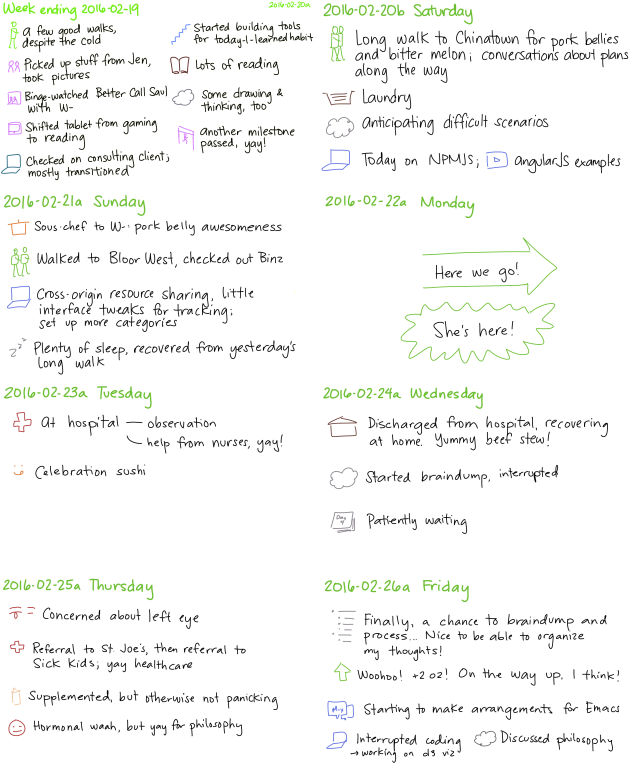 Week ending 2016-02-19
2016-02-20a
A few good walks,
despite the cold
Picked up stuff from Jen,
took pictures
Binge-watched Better Call Saul
with W-
Shifted tablet from gaming
to reading
Checked on consulting client;
mostly transitioned
Started building tools
for today-I-learned habit
Lots of reading
Some drawing &
thinking, too
another milestone
passed, yay!
2016-02-20b Saturday
Long walk to Chinatown for pork bellies
and bitter melon; conversations about plans
along the way
Laundry
Anticipating difficult scenarios
Today on NPMJS; AngularJS examples
2016-02-21a Sunday
Sous-chef to W-: pork belly awesomeness
Walked to Bloor West, checked out Binz
Cross-origin resource sharing, little
interface tweaks for tracking;
set up more categories
zzz
Plenty of sleep, recovered from yesterday's
long walk
2016-02-22a Monday
Here we go!
She's here!
2016-02-23a Tuesday
At hospital — observation
help from nurses, yay!
Celebration sushi
2016-02-24a Wednesday
Discharged from hospital, recovering
at home. Yummy beef stew!
Started braindump, interrupted
Patiently waiting
2016-02-25a Thursday
Concerned about left eye
Referral to St. Joe's, then referral to
Sick Kids; yay healthcare
Supplemented, but otherwise not panicking
Hormonal waah, but yay for philosophy
2016-02-26a Friday
Finally, a chance to braindump and
process... Nice to be able to organize
my thoughts!
Woohoo! +2 oz! On the way up, I think!
M-x
Starting to make arrangements for Emacs
Interrupted coding
→ working on d3 viz
Discussed philosophy